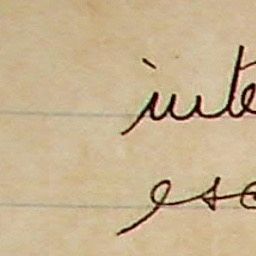 inte
esc